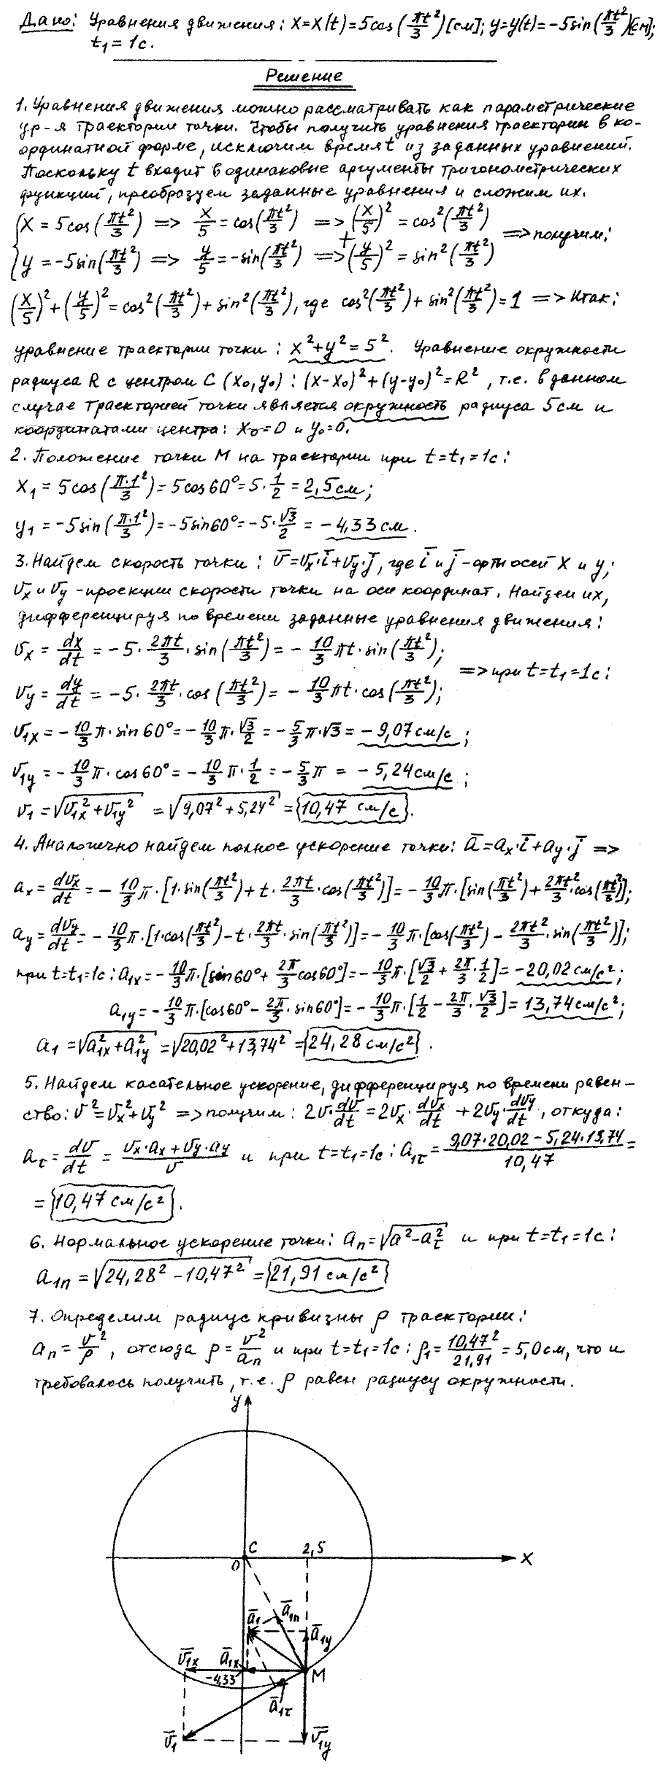 Дано: Уравнения движения: x=x(t)=5cos(πt²/3)[см]; y=y(t)=-5sin(πt²/3)[см];
t₁=1с.
Решение
1. Уравнения движения можно рассматривать как параметрические
ур-я траектории точки. Чтобы получить уравнения траектории в ко-
ординатной форме, исключим время t из заданных уравнений.
Поскольку t входит в одинаковые аргументы тригонометрических
функций, преобразуем заданные уравнения и сложим их.
{x=5cos(πt²/3) => x/5=cos(πt²/3) => (x/5)²=cos²(πt²/3)
{y=-5sin(πt²/3) => y/5=-sin(πt²/3) => +(y/5)²=sin²(πt²/3) => получим:
(x/5)²+(y/5)²=cos²(πt²/3)+sin²(πt²/3), где cos²(πt²/3)+sin²(πt²/3)=1 => Итак:
уравнение траектории точки: x²+y²=5². Уравнение окружности
радиуса R с центром C (x₀,y₀): (x-x₀)²+(y-y₀)²=R², т.е. в данном
случае траекторией точки является окружность радиуса 5см и
координатами центра: x₀=0 и y₀=0.
2. Положение точки M на траектории при t=t₁=1с:
x₁=5cos(π·1²/3)=5cos60°=5·1/2=2,5см;
y₁=-5sin(π·1²/3)=-5sin60°=-5·√3/2=-4,33см.
3. Найдем скорость точки: v̄=vₓ·ī+v_y·j̄, где ī и j̄-орты осей x и y;
vₓ и v_y-проекции скорости точки на оси координат. Найдем их,
дифференцируя по времени заданные уравнения движения:
vₓ=dx/dt=-5·2πt/3·sin(πt²/3)=-10/3πt·sin(πt²/3);
v_y=dy/dt=-5·2πt/3·cos(πt²/3)=-10/3πt·cos(πt²/3); => при t=t₁=1с:
v₁ₓ=-10/3π·sin60°=-10/3π·√3/2=-5/3π·√3=-9,07см/с;
v₁y=-10/3π·cos60°=-10/3π·1/2=-5/3π=-5,24см/с;
v₁=√(v₁ₓ²+v₁y²)=√(9,07²+5,24²)={10,47 см/с}.
4. Аналогично найдем полное ускорение точки: ā=aₓ·ī+a_y·j̄ =>
aₓ=dvₓ/dt=-10/3π·[1·sin(πt²/3)+t·2πt/3·cos(πt²/3)]=-10/3π·[sin(πt²/3)+2πt²/3·cos(πt²/3)];
a_y=dv_y/dt=-10/3π·[1·cos(πt²/3)-t·2πt/3·sin(πt²/3)]=-10/3π·[cos(πt²/3)-2πt²/3·sin(πt²/3)];
при t=t₁=1с: a₁ₓ=-10/3π·[sin60°+2π/3cos60°]=-10/3π·[√3/2+2π/3·1/2]=-20,02см/с²;
a₁y=-10/3π·[cos60°-2π/3·sin60°]=-10/3π·[1/2-2π/3·√3/2]=13,74см/с²;
a₁=√(a₁ₓ²+a₁y²)=√(20,02²+13,74²)={24,28см/с²}.
5. Найдем касательное ускорение, дифференцируя по времени равен-
ство: v²=vₓ²+v_y² => получим: 2v·dv/dt=2vₓ·dvₓ/dt+2v_y·dv_y/dt, откуда:
a_τ=dv/dt=(vₓ·aₓ+v_y·a_y)/v и при t=t₁=1с: a₁τ=(9,07·20,02-5,24·13,74)/10,47=
={10,47см/с²}.
6. Нормальное ускорение точки: aₙ=√(a²-a_τ²) и при t=t₁=1с:
a₁ₙ=√(24,28²-10,47²)={21,91см/с²}
7. Определим радиус кривизны ρ траектории:
aₙ=v²/ρ, отсюда ρ=v²/aₙ и при t=t₁=1с: ρ₁=10,47²/21,91=5,0см, что и
требовалось получить, т.е. ρ равен радиусу окружности.
y
O C 2,5 x
ā₁ ā₁ₙ ā₁y
v̄₁ₓ ā₁ₓ M
-4,33
ā₁τ
v̄₁ v̄₁y